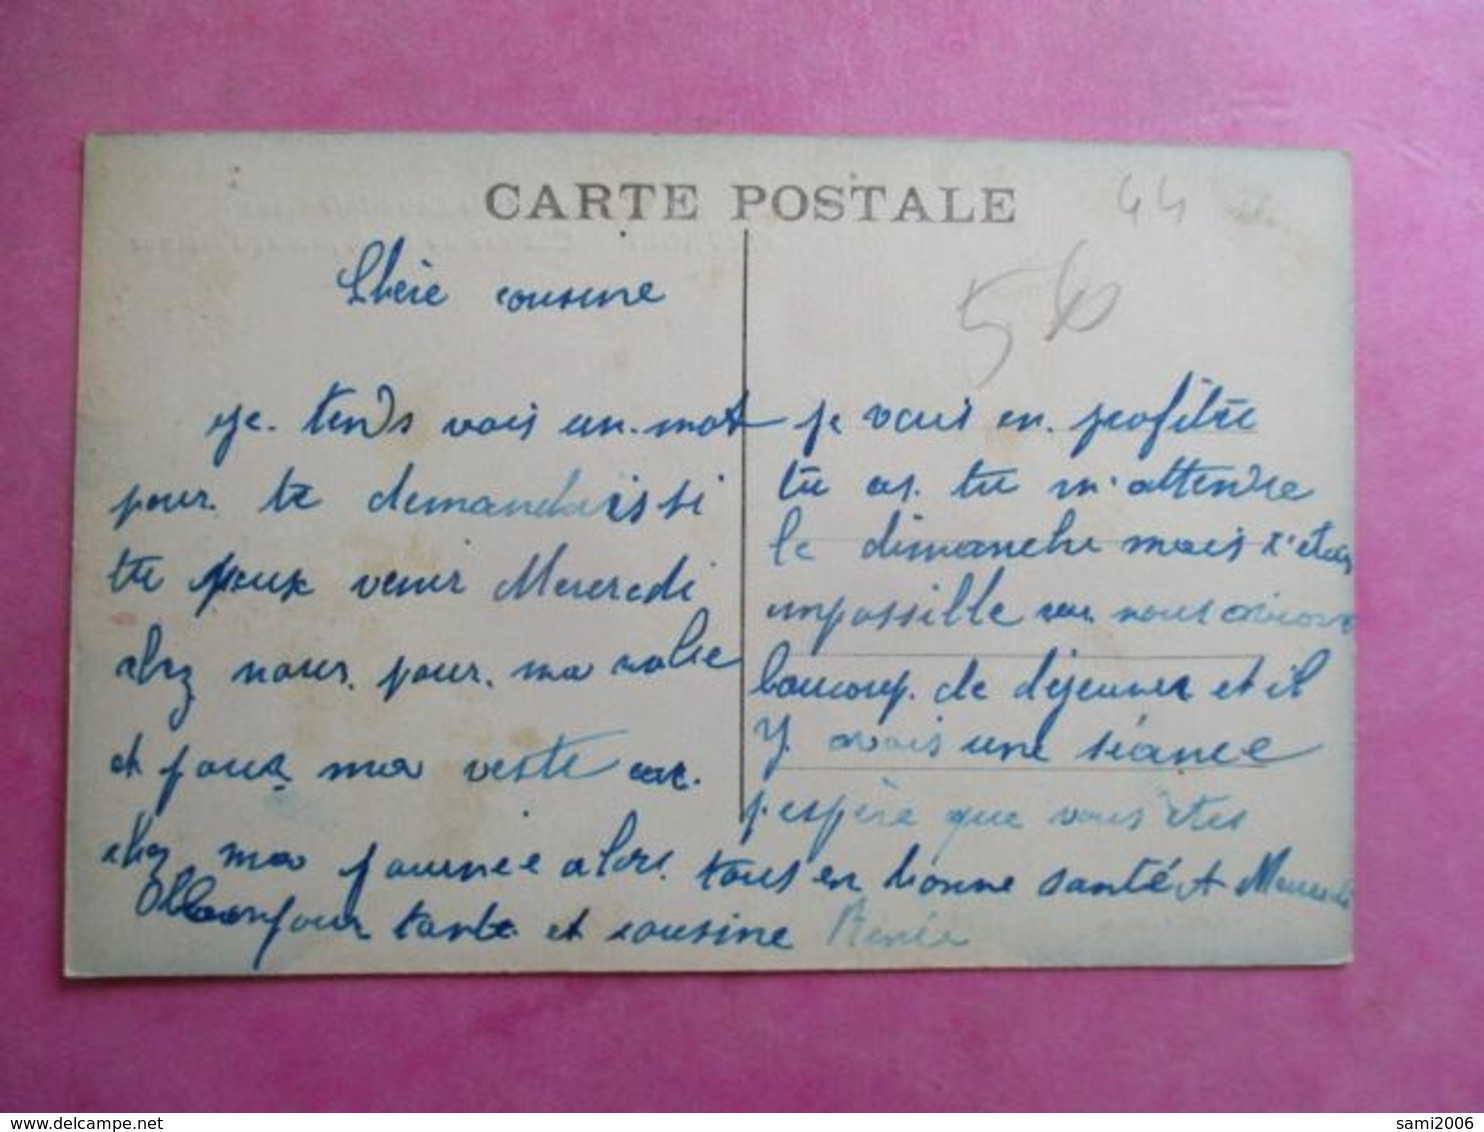 CARTE POSTALE
44
56
Chère cousine
je tends vois un mot
pour te demandais si
tu peux venir Mercredi
chez nous pour ma robe
et pour ma veste car
chez ma journée alors
je vais en profiter
tu as tu m'attendre
le dimanche mais s'étais
impossible car nous avions
baucoup de déjeuner et il
y avais une séance
j'espère que vous êtes
tous en bonne santé A Mercredi
bonjour tante et cousine Renée
sami2006